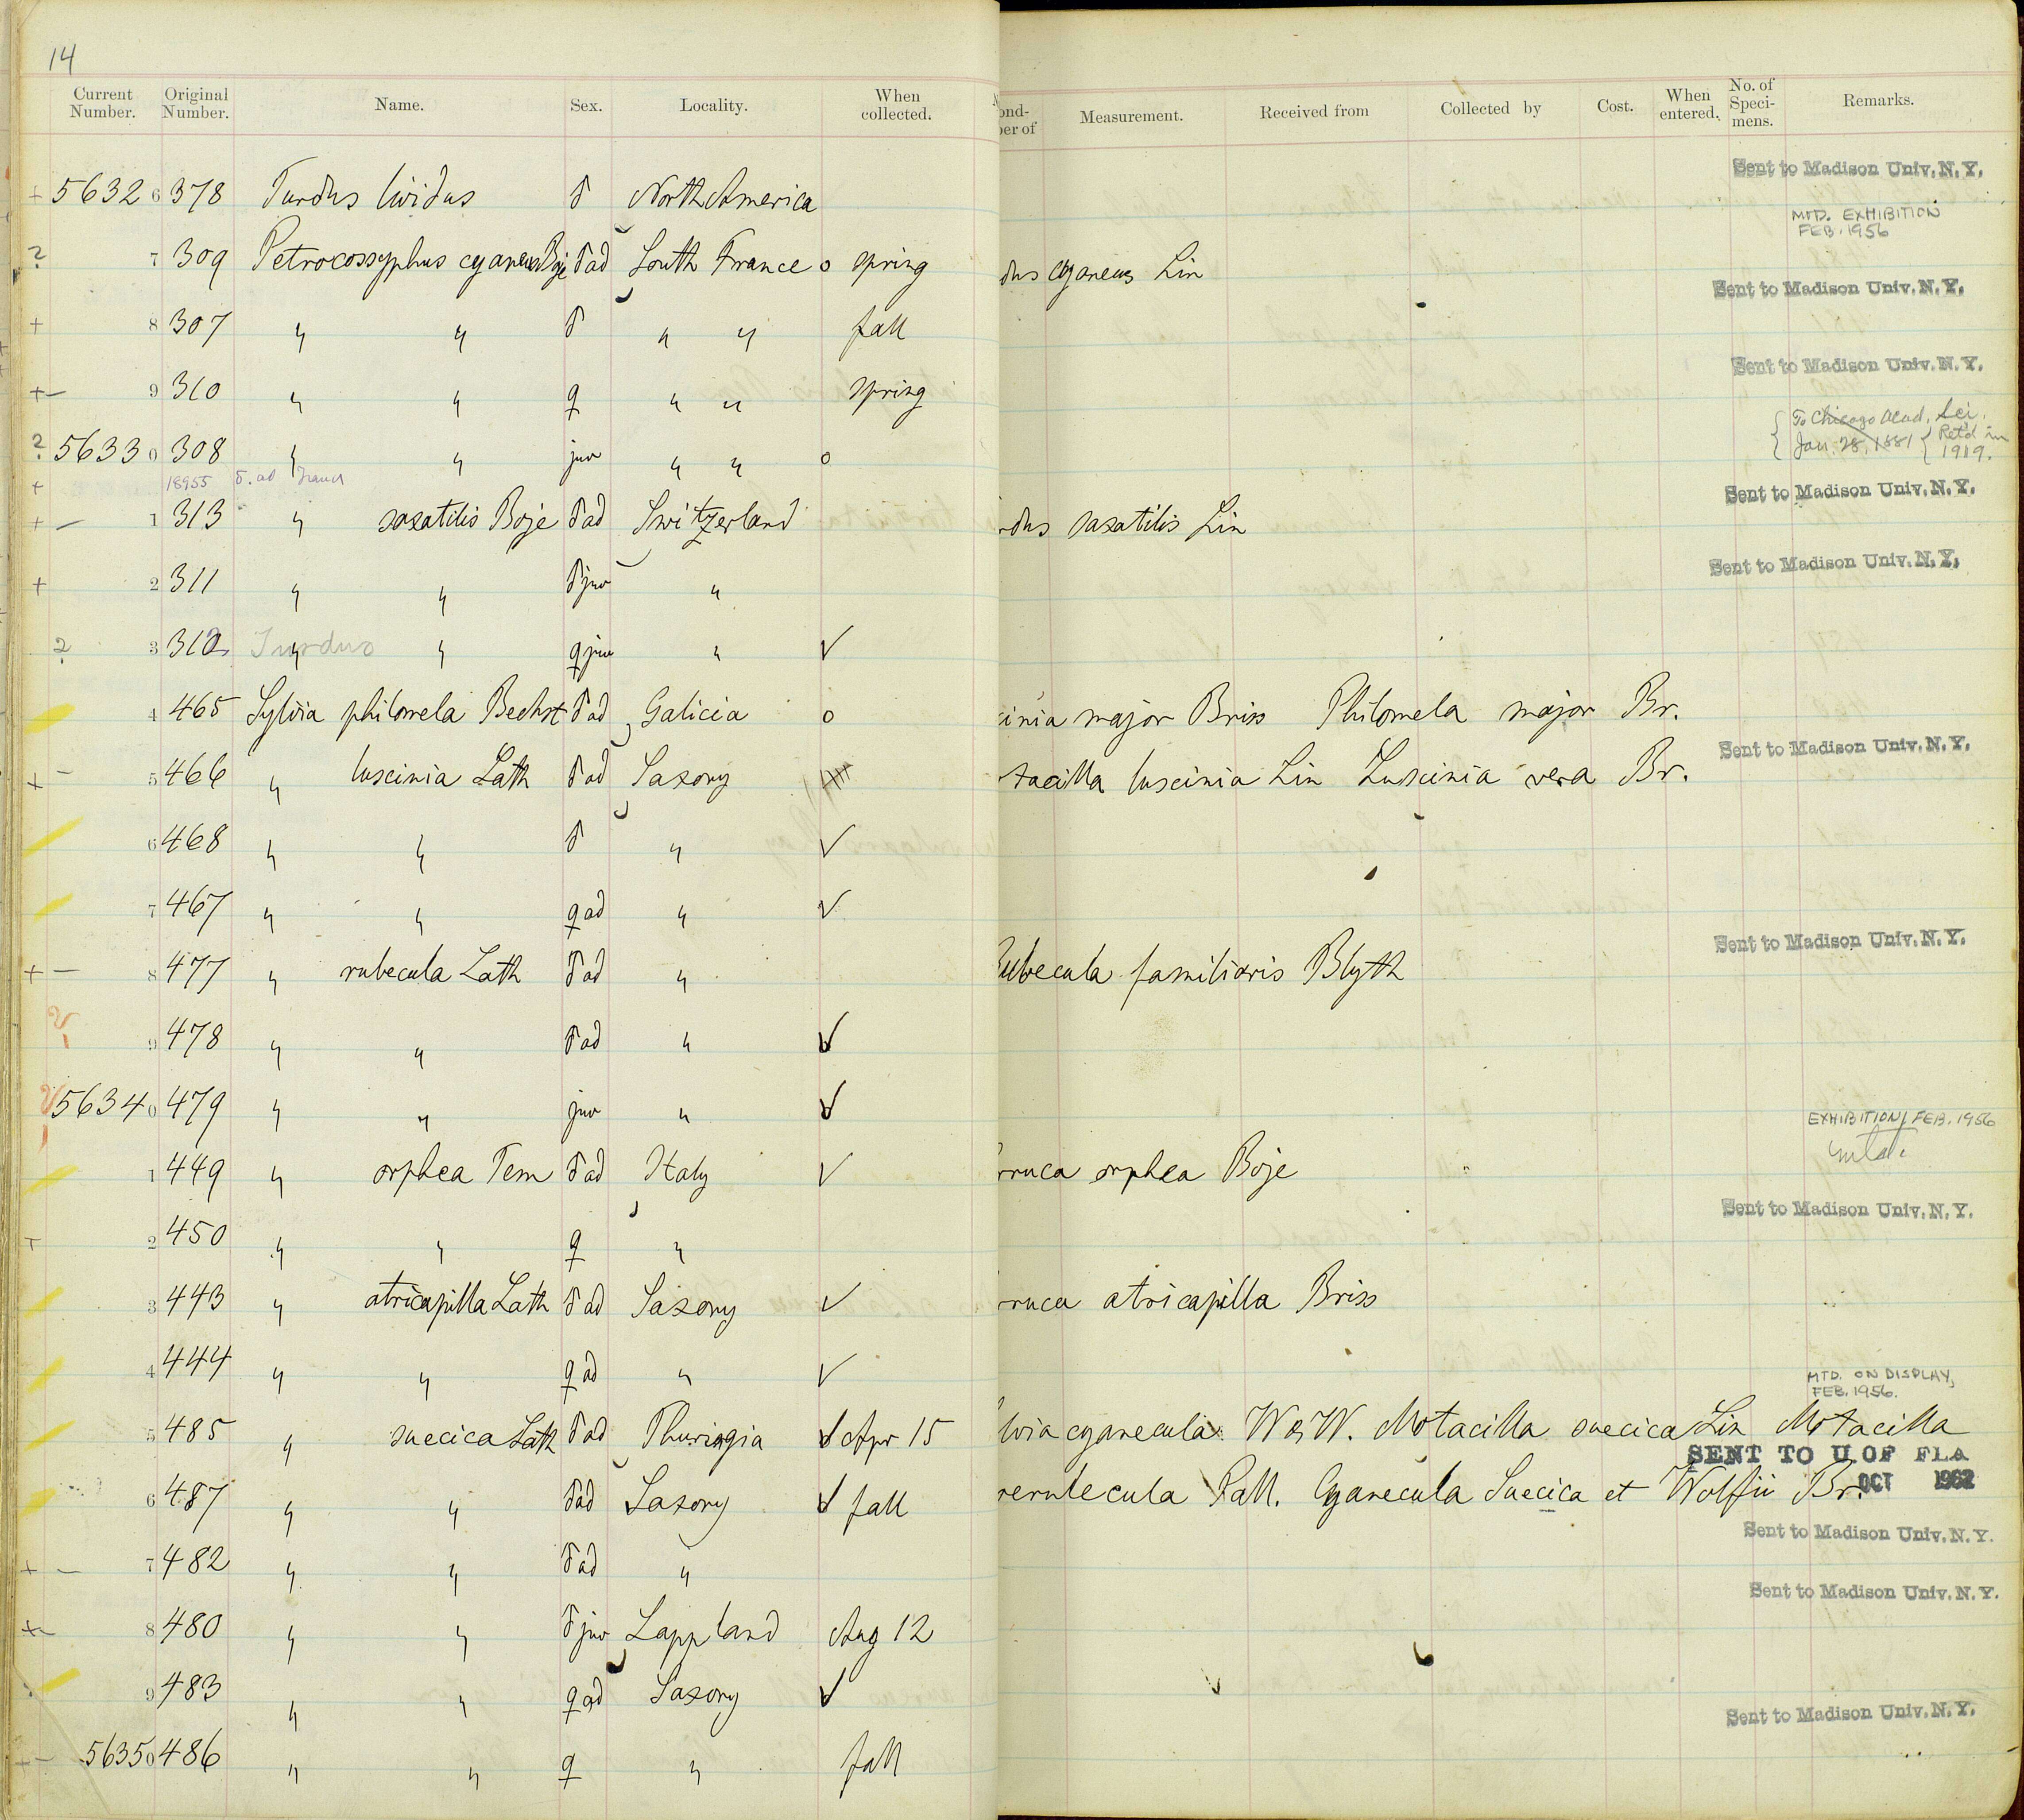 14
Current Number. Original Number. Name. Sex. Locality. When collected. ond- er of Measurement. Received from Collected by Cost. When entered. No. of Speci- mens. Remarks.
Sent to Madison Univ. N. Y.
+ 5632 6 378 Turdus lividus ♂ North America
MTD. EXHIBITION
FEB. 1956
? 7 309 Petrocossyphus cyaneus Boje ♂ ad South France o spring dus cyaneus Lin
Sent to Madison Univ. N. Y.
+ 8 307 " " ♂ " " fall
Sent to Madison Univ. N. Y.
+— 9 310 " " ♀ " " spring
To Chicago Acad. Sci.
Jan. 28, 1881 Ret'd in 1919.
? 5633 0 308 " " juv " " o
+ 18955 ♂. ad
Sent to Madison Univ. N. Y.
+ — 1 313 " saxatilis Boje ♂ ad Switzerland dus saxatilis Lin
Sent to Madison Univ. N. Y.
+ 2 311 " " ♂ juv "
? 3 312 Turdus " " ♀ juv " ✓
4 465 Sylvia philomela Bechst ♂ ad Galicia o inia major Briss Philomela major Br.
Sent to Madison Univ. N. Y.
+ — 5 466 " luscinia Lath ♂ ad Saxony tacilla luscinia Lin Luscinia vera Br.
6 468 " " ♂ " ✓
7 467 " " ♀ ad " ✓
Sent to Madison Univ. N. Y.
+ — 8 477 " rubecula Lath ♂ ad " ubecula familiaris Blyth
? 9 478 " " ♂ ad " ✓
? 5634 0 479 " " juv " ✓
EXHIBITION FEB. 1956
1 449 " orphea Tem ♂ ad Italy ✓ rruca orphea Boje
Sent to Madison Univ. N. Y.
+ 2 450 " " ♀ "
3 443 " atricapilla Lath ♂ ad Saxony ✓ rruca atricapilla Briss
4 444 " " ♀ ad " ✓
MTD. ON DISPLAY,
FEB. 1956.
5 485 " suecica Lath ♂ ad Thuringia ✓ Apr 15 lvia cyanecula W & W. Motacilla suecica Lin Motacilla
SENT TO U OF FLA
OCT 1962
6 487 " " ♂ ad Saxony ✓ fall erulecula Pall. Cyanecula Suecica et Wolfii Br.
Sent to Madison Univ. N. Y.
+ — 7 482 " " ♂ ad "
Sent to Madison Univ. N. Y.
+— 8 480 " " ♂ juv Lappland Aug 12
9 483 " " ♀ ad Saxony ✓
Sent to Madison Univ. N. Y.
— 5635 0 486 " " ♀ " fall